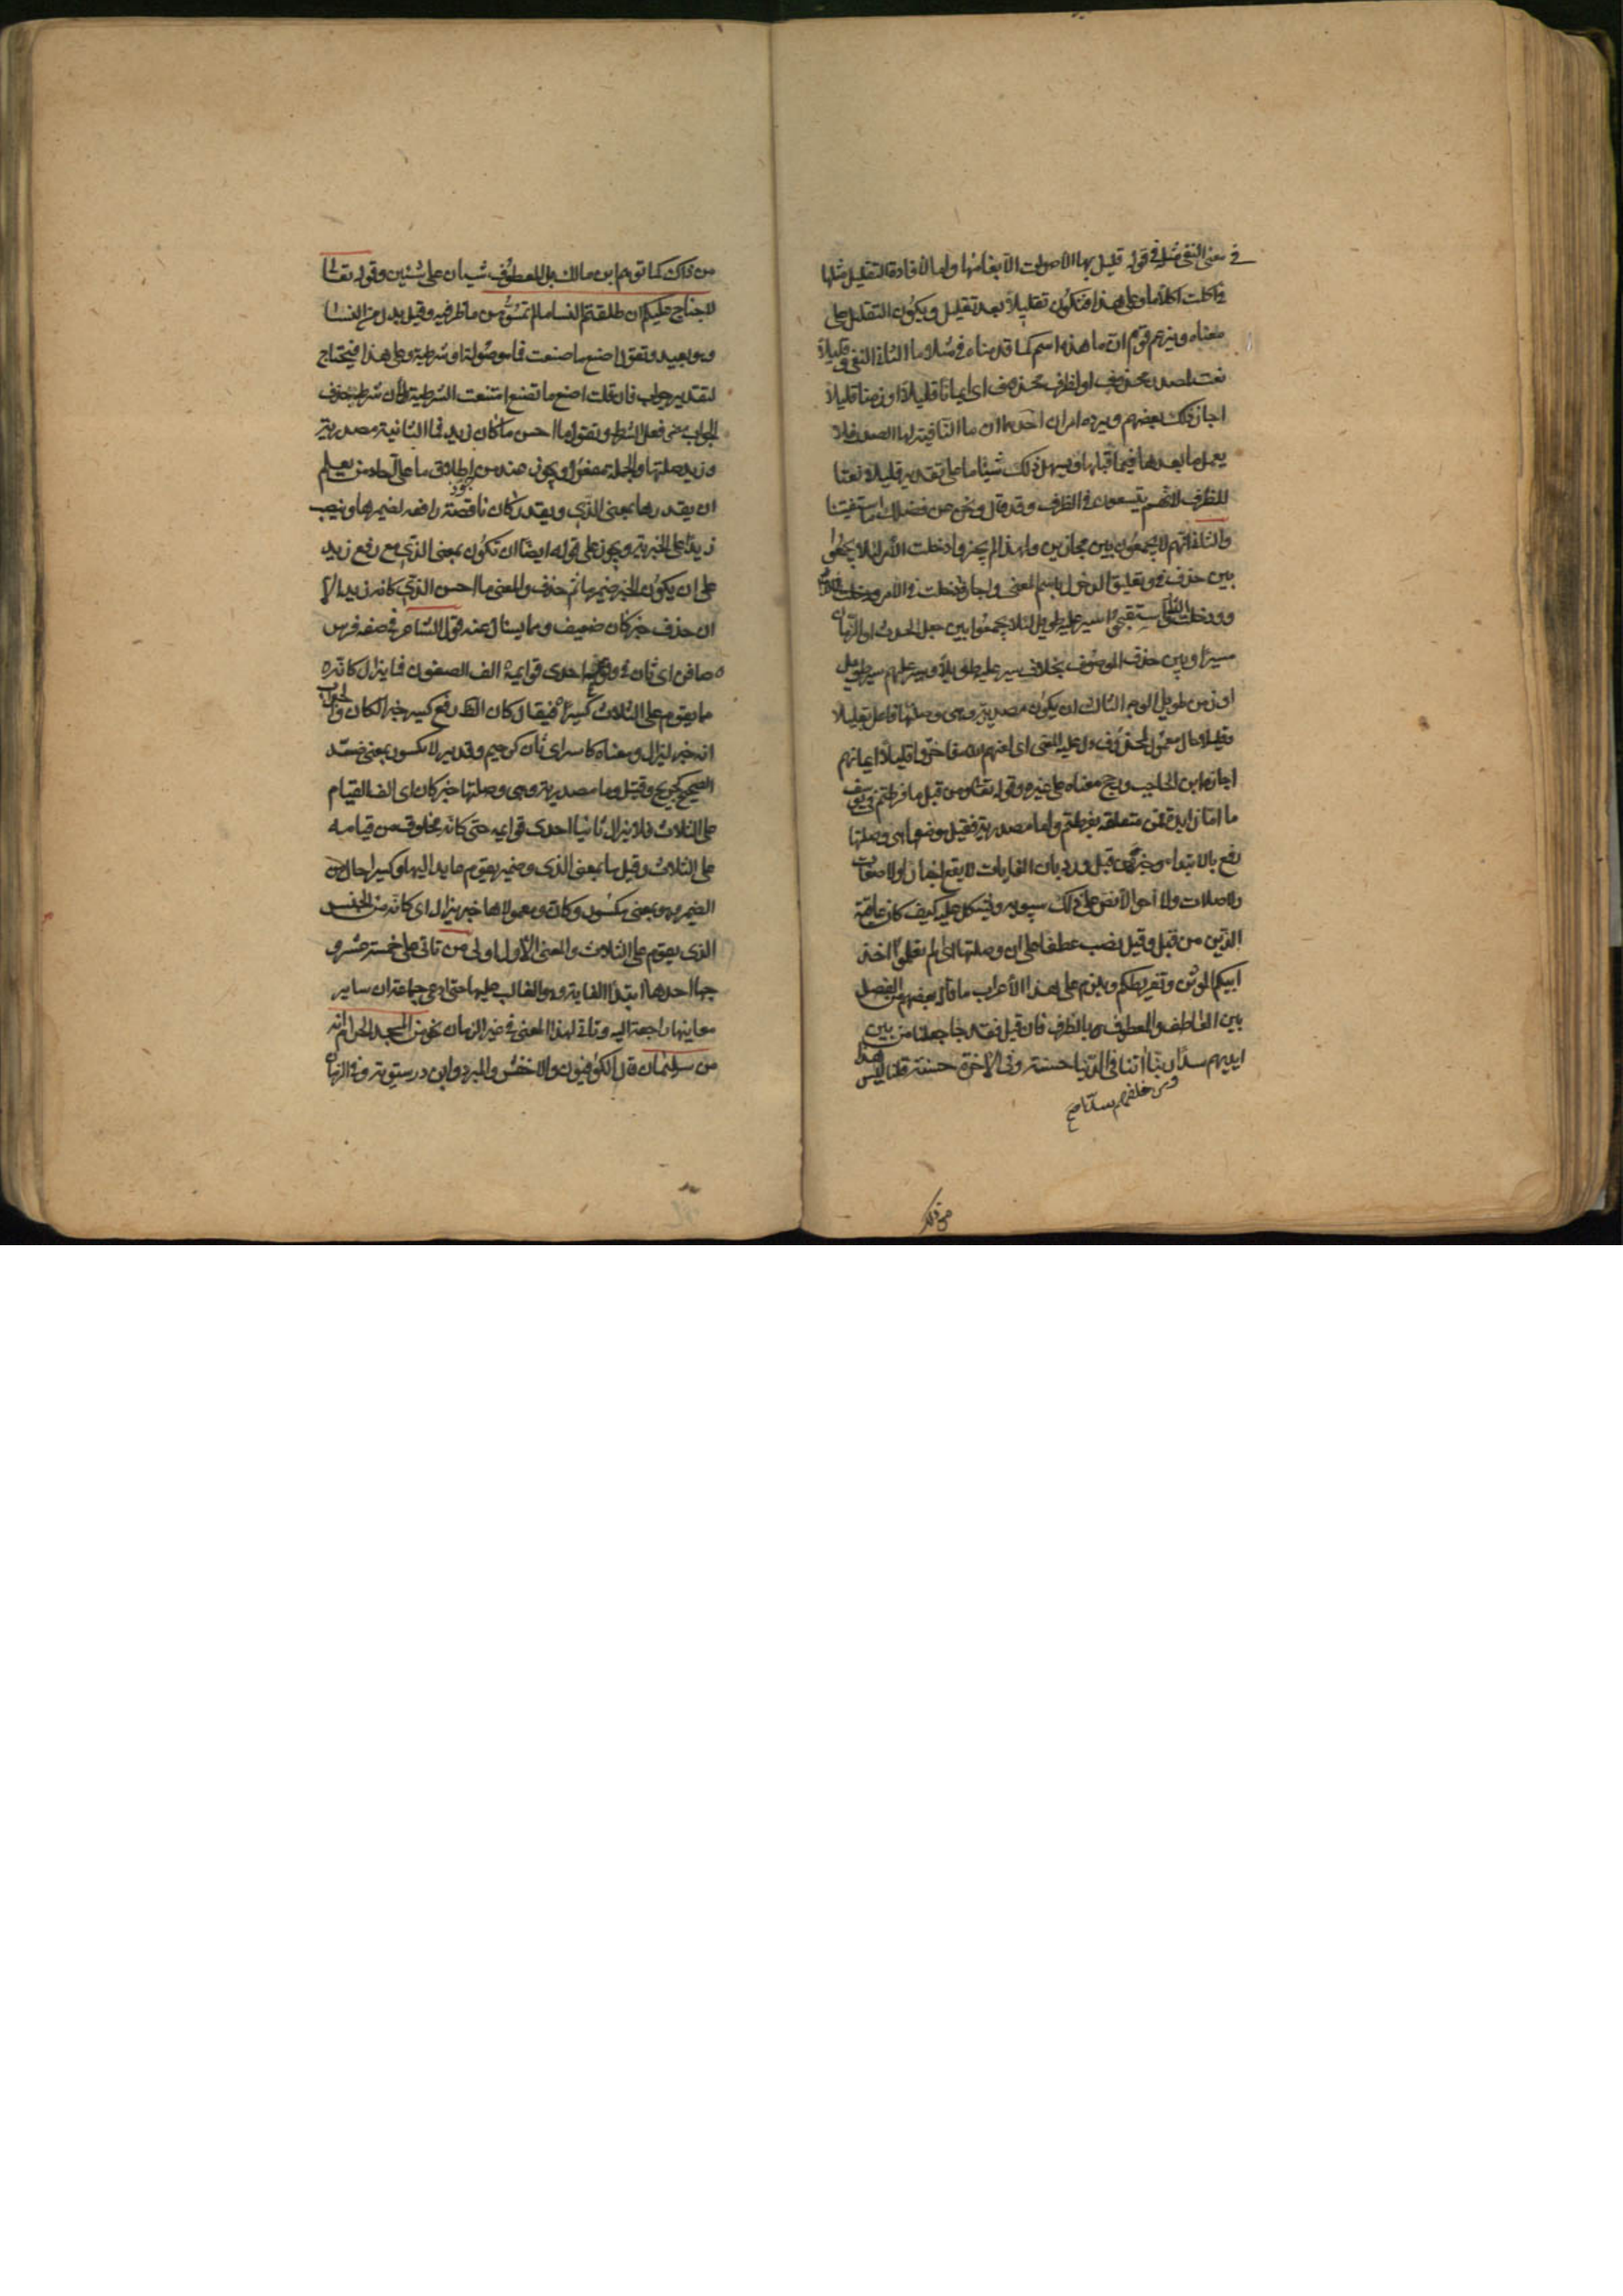 في معنى النفي مثلها في قوله قليل بها الأصوات الا بغامها واما لافادة التقليل مثلها
في اكلت اكلا ما وعلى هذا فتكون تقليلا بعد تقليل ويكون التقليل على
معناه ويزعم قوم ان ما هذه اسم كما قدمناه في مثلا ما الثاني النفي وقليلا
نعت لمصدر محذوف او لظرف محذوف اى ايمانا قليلا او زمنا قليلا
اجاز ذلك بعضهم ويرده امران احدهما ان ما النافية لها الصدر فلا
يعمل ما بعدها فيما قبلها ويسهل ذلك شيئا ما على تقدير قليلا نعتا
للظرف لانهم يتسعون في الظرف وقد قال ونحن عن فضلك ما استغنينا
والثاني انهم لا يجمعون بين مجازين ولهذا لم يجيزوا دخلت الأمر لئلا يجمعوا
بين حذف في وتعليق الدخول باسم المعنى واجازوا دخلت في الأمر ودخلت الدار
واستقبحوا سير عليه طويل لئلا يجمعوا بين جعل الحدث او الزمان
مسيرا وبين حذف الموصوف بخلاف سير عليه طويلا وسير عليه سير طويل
او زمن طويل الوجه الثالث ان يكون مصدرية وهى وصلتها فاعل بقليلا
وقليلا حال معمول لمحذوف دل عليه المعنى اى لعنهم الله فاخروا قليلا ايمانهم
اجازه ابن الحاجب ورجح معناه على غيره وقوله تعالى ومن قبل ما فرطتم في يوسف
ما اما زايدة فمن متعلقه بفرطتم واما مصدرية فقيل موضعها هى وصلتها
رفع بالابتداء وخبره من قبل ورد بان الغايات لا يقع اخبارا ولا صفات
ولا صلات ولا احوالا نص على ذلك سيبويه ويشكل عليه كيف كان عاقبة
الذين من قبل وقيل نصب عطفا على ان وصلتها اى الم تعلموا اخذ
ابيكم الموثق وتفريطكم ويلزم على هذا الأعراب ما قال بعضهم من الفصل
بين العاطف والمعطوف بالظرف فان قيل فقد جا جعلنا من بين
ايديهم سدا ربنا اتنا في الدنيا حسنة وفى الآخرة حسنة قلنا ليس هذا
ومن خلفهم سدا صح
من ذلك
من ذاك كما توهم ابن مالك بل المعطوف شيئان على شيئين وقوله تعالى
لا جناح عليكم ان طلقتم النسا ما لم تمسوهن ما ظرفيه وقيل بدل من النسا
وهو بعيد وتقول اصنع ما صنعت فما موصولة او شرطية وعلى هذا فيحتاج
لتقدير جواب فان قلت اصنع ما تصنع امتنعت الشرطية لأن شرط حذف
الجواب مضى فعل الشرط وتقول ما احسن ما كان زيد فما الثانية مصدرية
وزيد صلتها والجملة مفعول ويجوز عند من جوز اطلاق ما على آحاد من يعلم
ان يقدرها بمعنى الذي ويقدر كان ناقصة رافعه لضميرها وينصب
زيدا على الخبرية ويجوز على قوله ايضا ان تكون بمعنى الذي مع رفع زيد
على ان يكون الخبر ضمير ما ثم حذف والمعنى ما احسن الذي كانه زيد الا
ان حذف خبر كان ضعيف ومما يسئال عنه قول الشاعر في صفه فرس
صافن اى ثان في وقوفه احدى قوايمه الف الصفون فما يزال كانه
مما يقوم على الثلاث كسيرا فيقال كان الظ رفع كسير خبرا لكان والجواب
انه خبر ليزال ومعناه كاسر اى ثان كرحيم وقدير لا مكسور بمعنى ضد
الصحيح كجريح وقتيل وما مصدرية وهى وصلتها خبر كان اى الف القيام
على الثلاث فلا يزال ثانيا احدى قوايمه حتى كانه مخلوق من قيامه
على الثلاث وقيل ما بمعنى الذى وضمير يقوم عايد اليها وكسيرا حال من
الضمير وهو بمعنى مكسور وكان ومعمولاها خبر يزال اى كانه من الجنس
الذى يقوم على الثلاث والمعنى الأول اولى من تاتى على خمسة عشر و
جها احدها ابتدا الغاية وهو الغالب عليها حتى ادعى جماعة ان ساير
معاينها راجعة اليه وتاتى لهذا المعنى في غير الزمان نحو من المسجد الحرام انه
من سليمان قال الكوفيون والاخفش والمبرد وابن درستويه وفى الزمان